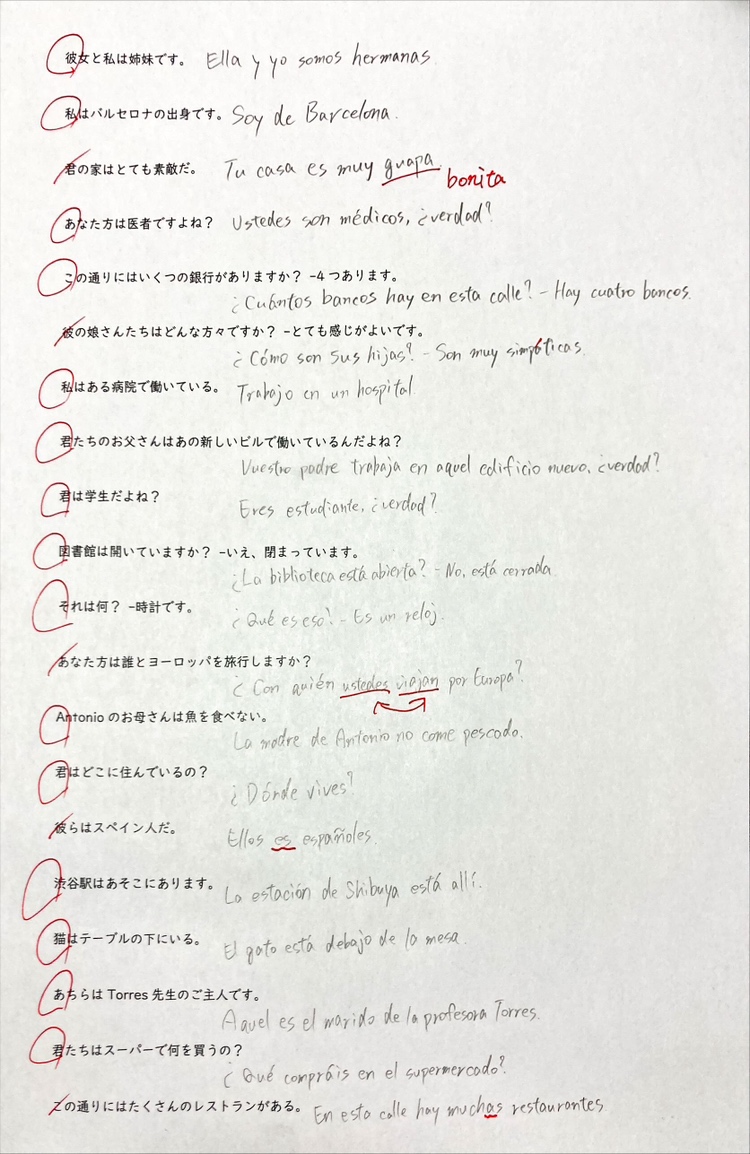 彼女と私は姉妹です。 Ella y yo somos hermanas.
私はバルセロナの出身です。 Soy de Barcelona.
君の家はとても素敵だ。 Tu casa es muy guapa.
bonita
あなた方は医者ですよね？ Ustedes son médicos, ¿verdad?
この通りにはいくつの銀行がありますか？ -4 つあります。
¿Cuántos bancos hay en esta calle? - Hay cuatro bancos.
彼の娘さんたちはどんな方々ですか？ -とても感じがよいです。
¿Cómo son sus hijas? - Son muy simpáticas.
私はある病院で働いている。 Trabajo en un hospital.
君たちのお父さんはあの新しいビルで働いているんだよね？
Vuestro padre trabaja en aquel edificio nuevo, ¿verdad?
君は学生だよね？ Eres estudiante, ¿verdad?
図書館は開いていますか？ -いえ、閉まっています。
¿La biblioteca está abierta? - No, está cerrada.
それは何？ -時計です。
¿Qué es eso? - Es un reloj.
あなた方は誰とヨーロッパを旅行しますか？
¿Con quién ustedes viajan por Europa?
Antonio のお母さんは魚を食べない。
La madre de Antonio no come pescado.
君はどこに住んでいるの？
¿Dónde vives?
彼らはスペイン人だ。 Ellos es españoles.
渋谷駅はあそこにあります。 La estación de Shibuya está allí.
猫はテーブルの下にいる。 El gato está debajo de la mesa.
あちらは Torres 先生のご主人です。
Aquel es el marido de la profesora Torres.
君たちはスーパーで何を買うの？
¿Qué compráis en el supermercado?
この通りにはたくさんのレストランがある。 En esta calle hay muchas restaurantes